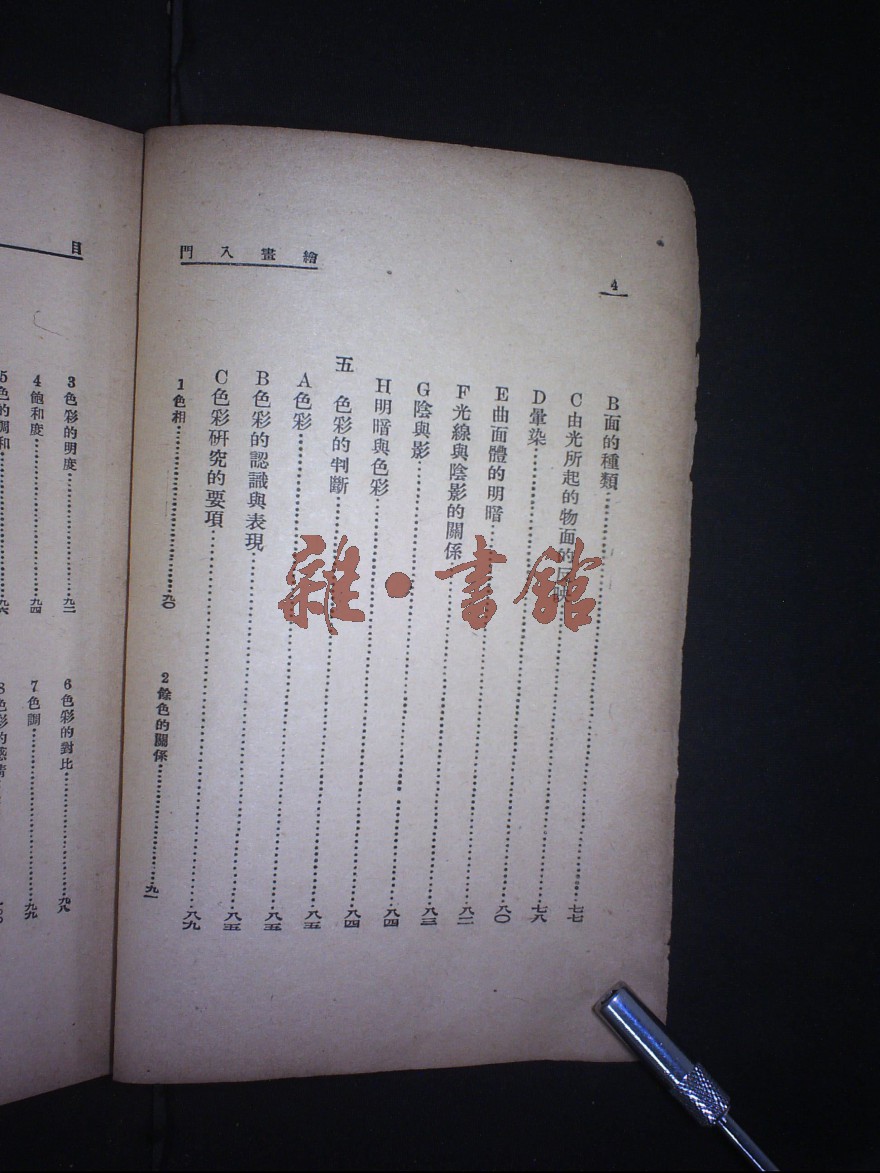 4
繪畫入門
B面的種類……七七
C由光所起的物面的反映……七八
D暈染……八〇
E曲面體的明暗……八二
F光線與陰影的關係……八三
G陰與影……八四
H明暗與色彩……八四
五 色彩的判斷……八五
A色彩……八五
B色彩的認識與表現……八五
C色彩研究的要項……八九
1色相……九〇 2餘色的關係……九一
目
3色彩的明度……九二 6色彩的對比……九八
4飽和度……九四 7色調……九九
5色的調和……九六 8色彩的感情
雜·書館